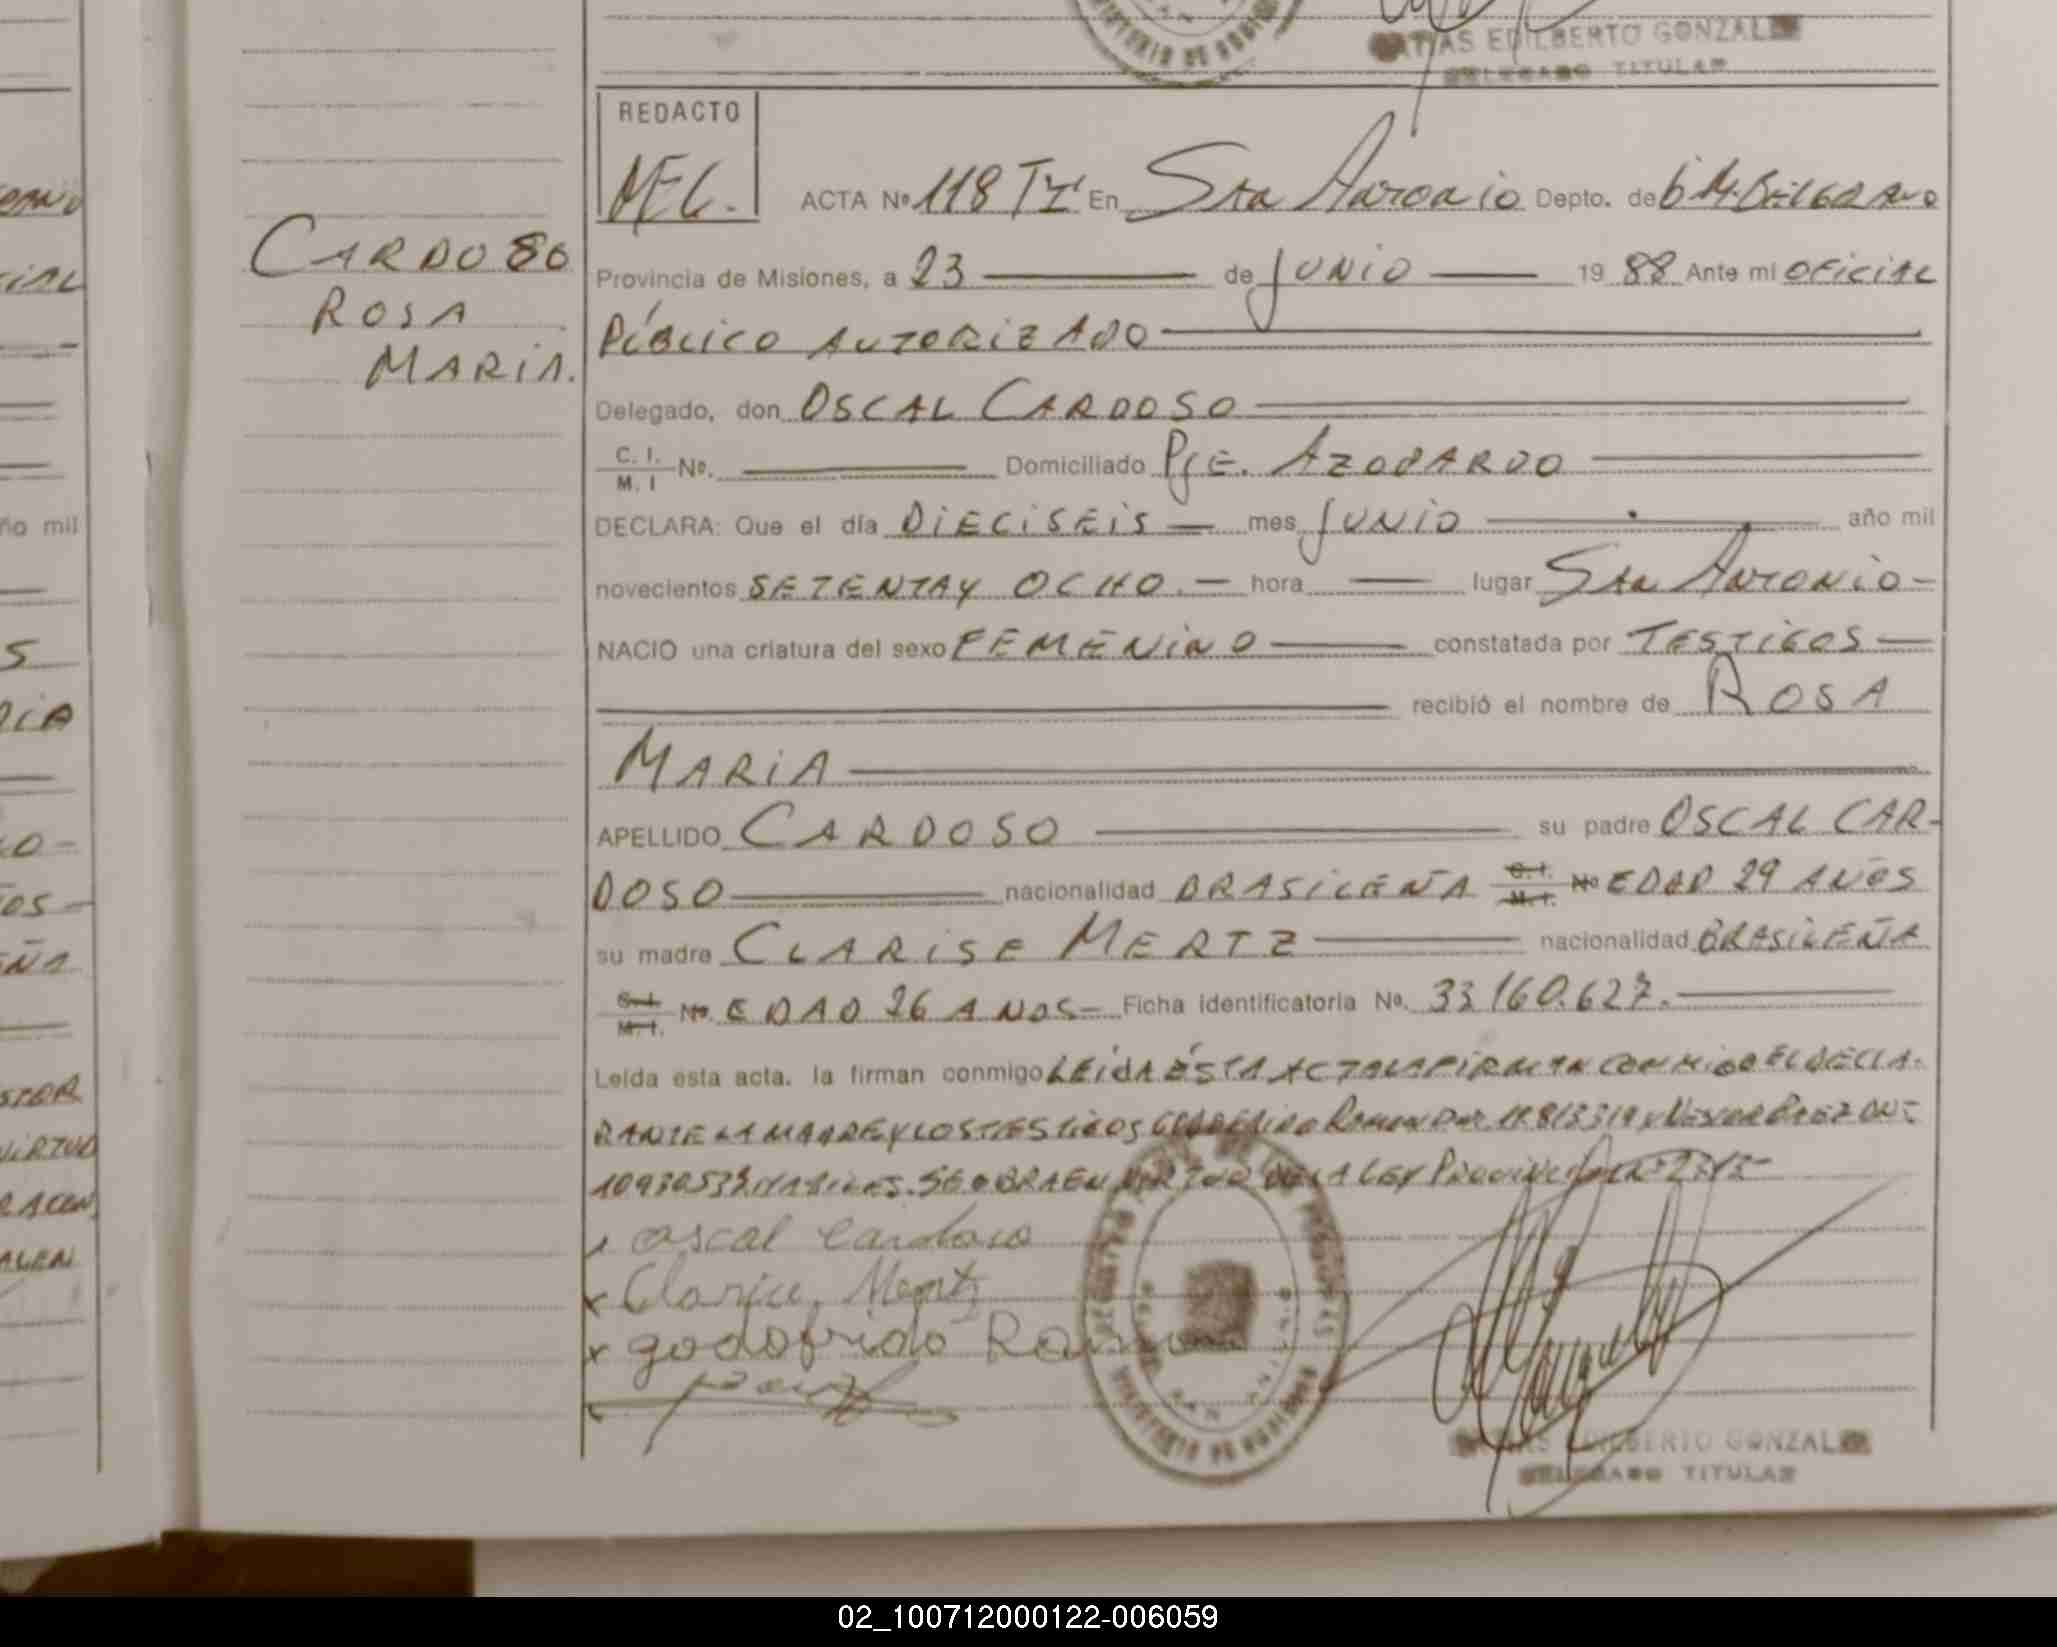 ATIAS EDILBERTO GONZAL
DELEGADO TITULAR
REDACTO
MEG.
ACTA Nº 118 TI En Sta Antonio Depto. de G.M.BELGRANO
CARDOSO
ROSA
MARIA.
Provincia de Misiones, a 23 de JUNIO 19 88 Ante mi OFICIAL
PÚBLICO AUTORIZADO
Delegado, don OSCAL CARDOSO
C. I.
M. I Nº. Domiciliado Pje. AZOPARDO
DECLARA: Que el día DIECISEIS mes JUNIO año mil
novecientos SETENTAY OCHO. hora lugar Sta ANTONIO
NACIO una criatura del sexo FEMENINO constatada por TESTIGOS
recibió el nombre de ROSA
MARIA
APELLIDO CARDOSO su padre OSCAL CAR-
DOSO nacionalidad BRASILEÑA C.I. M.I. Nº EDAD 29 AÑOS
su madre CLARISE MERTZ nacionalidad BRASILEÑA
C.I. M.I. Nº. EDAD 26 ANOS Ficha identificatoria Nº. 33 160.627.
Leída esta acta. la firman conmigo LEÍDA ÉSTA ACTA LA FIRMAN CONMIGO EL DECLA-
RANTE LA MADRE Y LOS TESTIGOS RAMON Y NESTOR BAEZ DNI
SE OBRA EN VIRTUD DE LA LEY PROVINCIAL
oscal Cardoso
x Clarice Mertz
x godofrido Ramon
EDILBERTO GONZAL
DELEGADO TITULAR
02_100712000122-006059